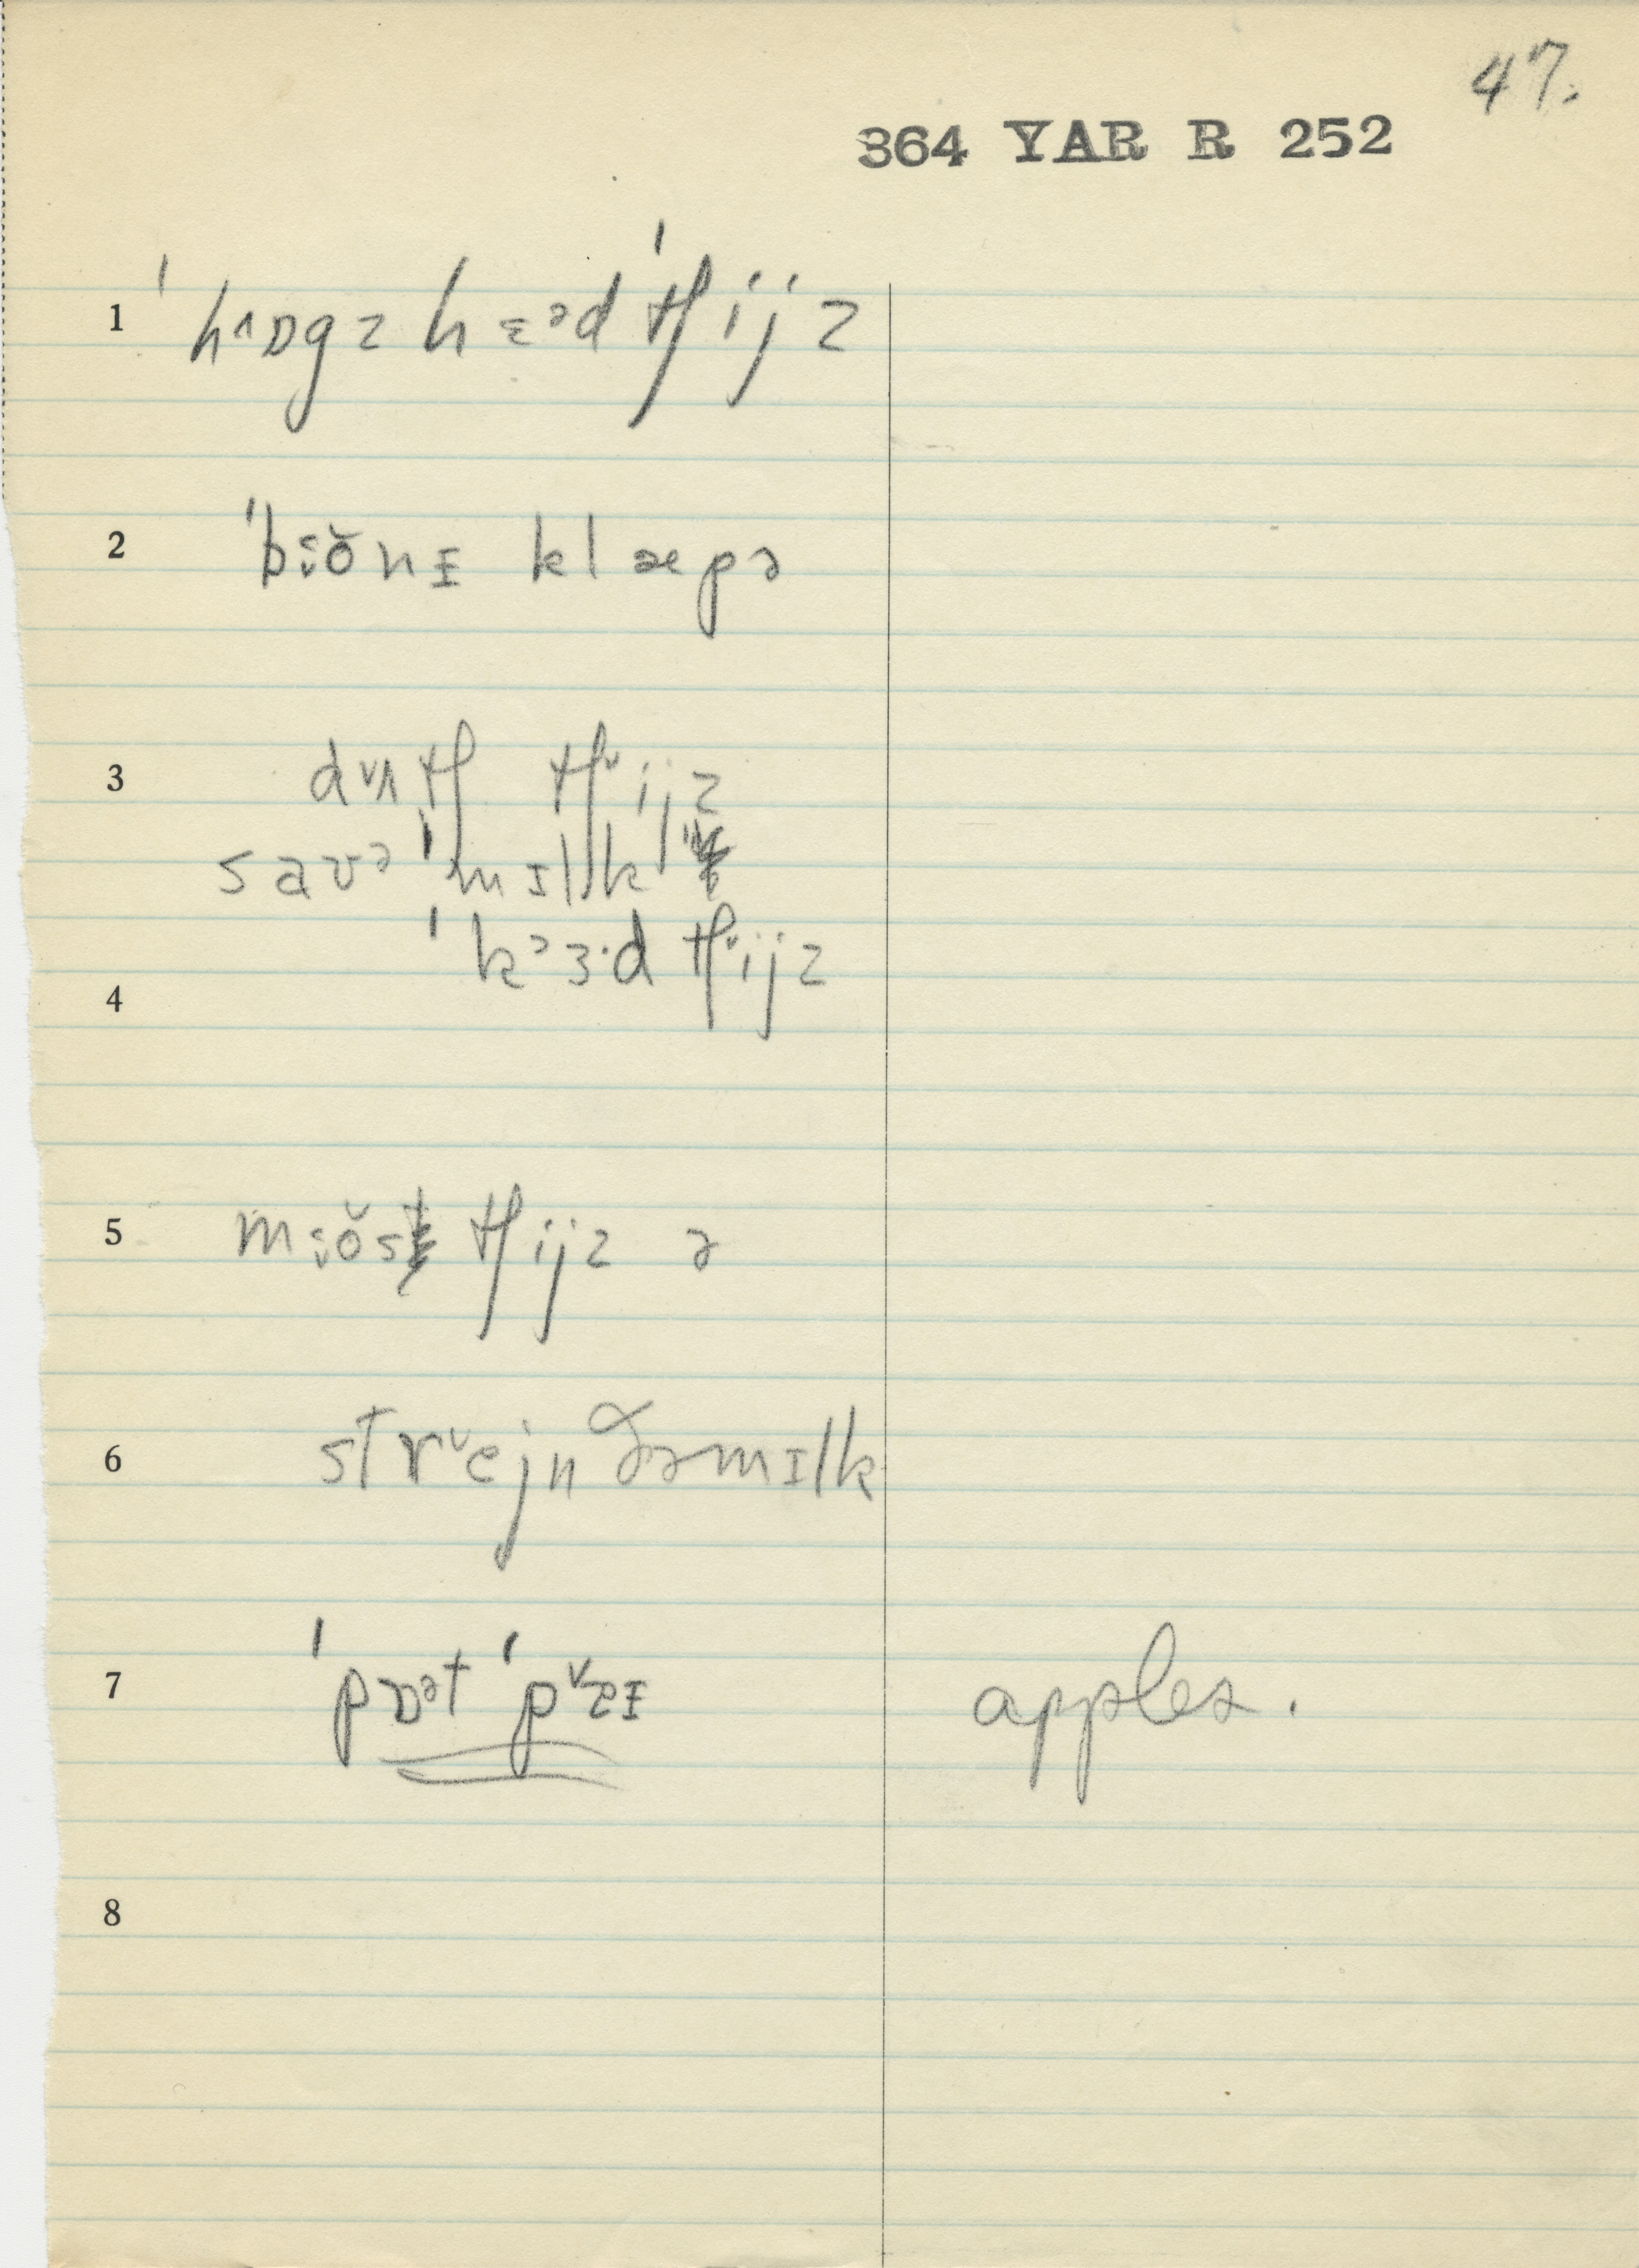 47.
364 YAR R 252
1 ˈhʌɒgz hɛᵊd ˈtʃijz
2 ˈbi̯ŏnɪ klæpə
3 dʌtʃ tʃijz
savə ˈmɪlk
ˈkᵊɜ·d tʃijz
4
5 mi̯ŏs tʃijz ə
6 strᵛejn ðəmɪlk
7 ˈpɒᵊt ˈpᵛɛɪ apples.
8